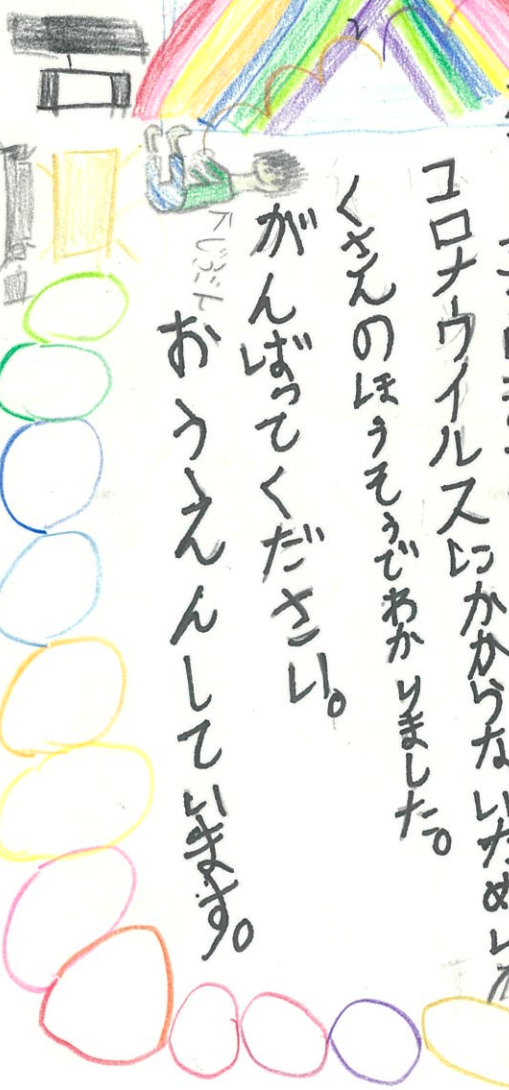 コロナウイルスにかからないため
くさんのほうそうでわかりました。
がんばってください。
おうえんしています。
じぶん